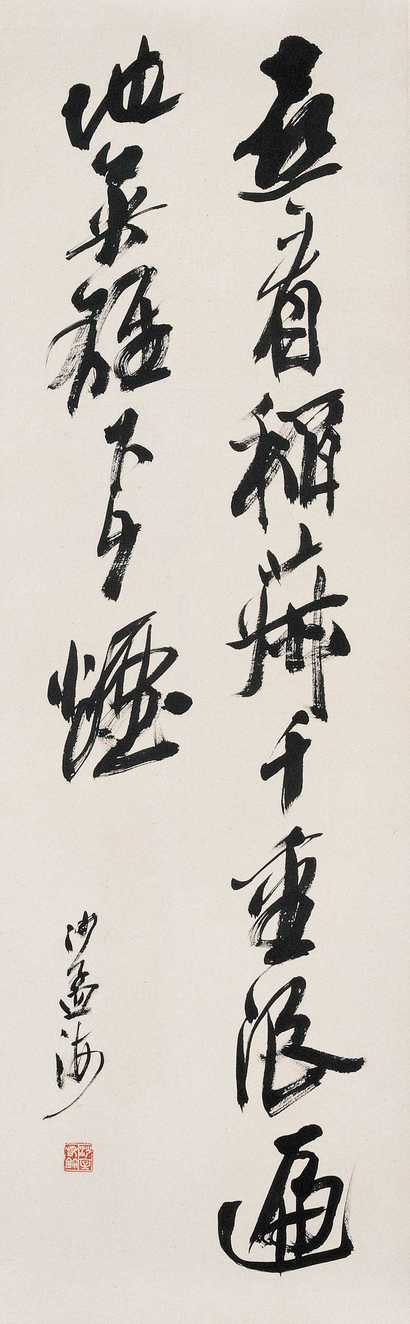 喜看稻菽千重浪遍
地英雄下夕煙
沙孟海